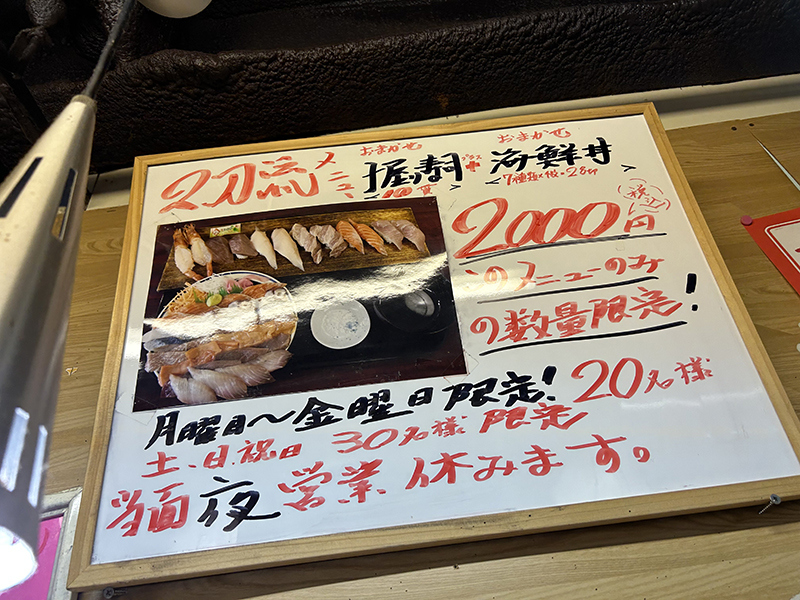 おまかせ おまかせ
2刀流メニュー 握寿司 プラス + 海鮮丼
<10貫> <7種類×微・28切>
2000円 (税込)
このメニューのみ
の数量限定!
月曜日〜金曜日限定! 20名様
土、日、祝日 30名様 限定
当面 夜 営業 休みます。